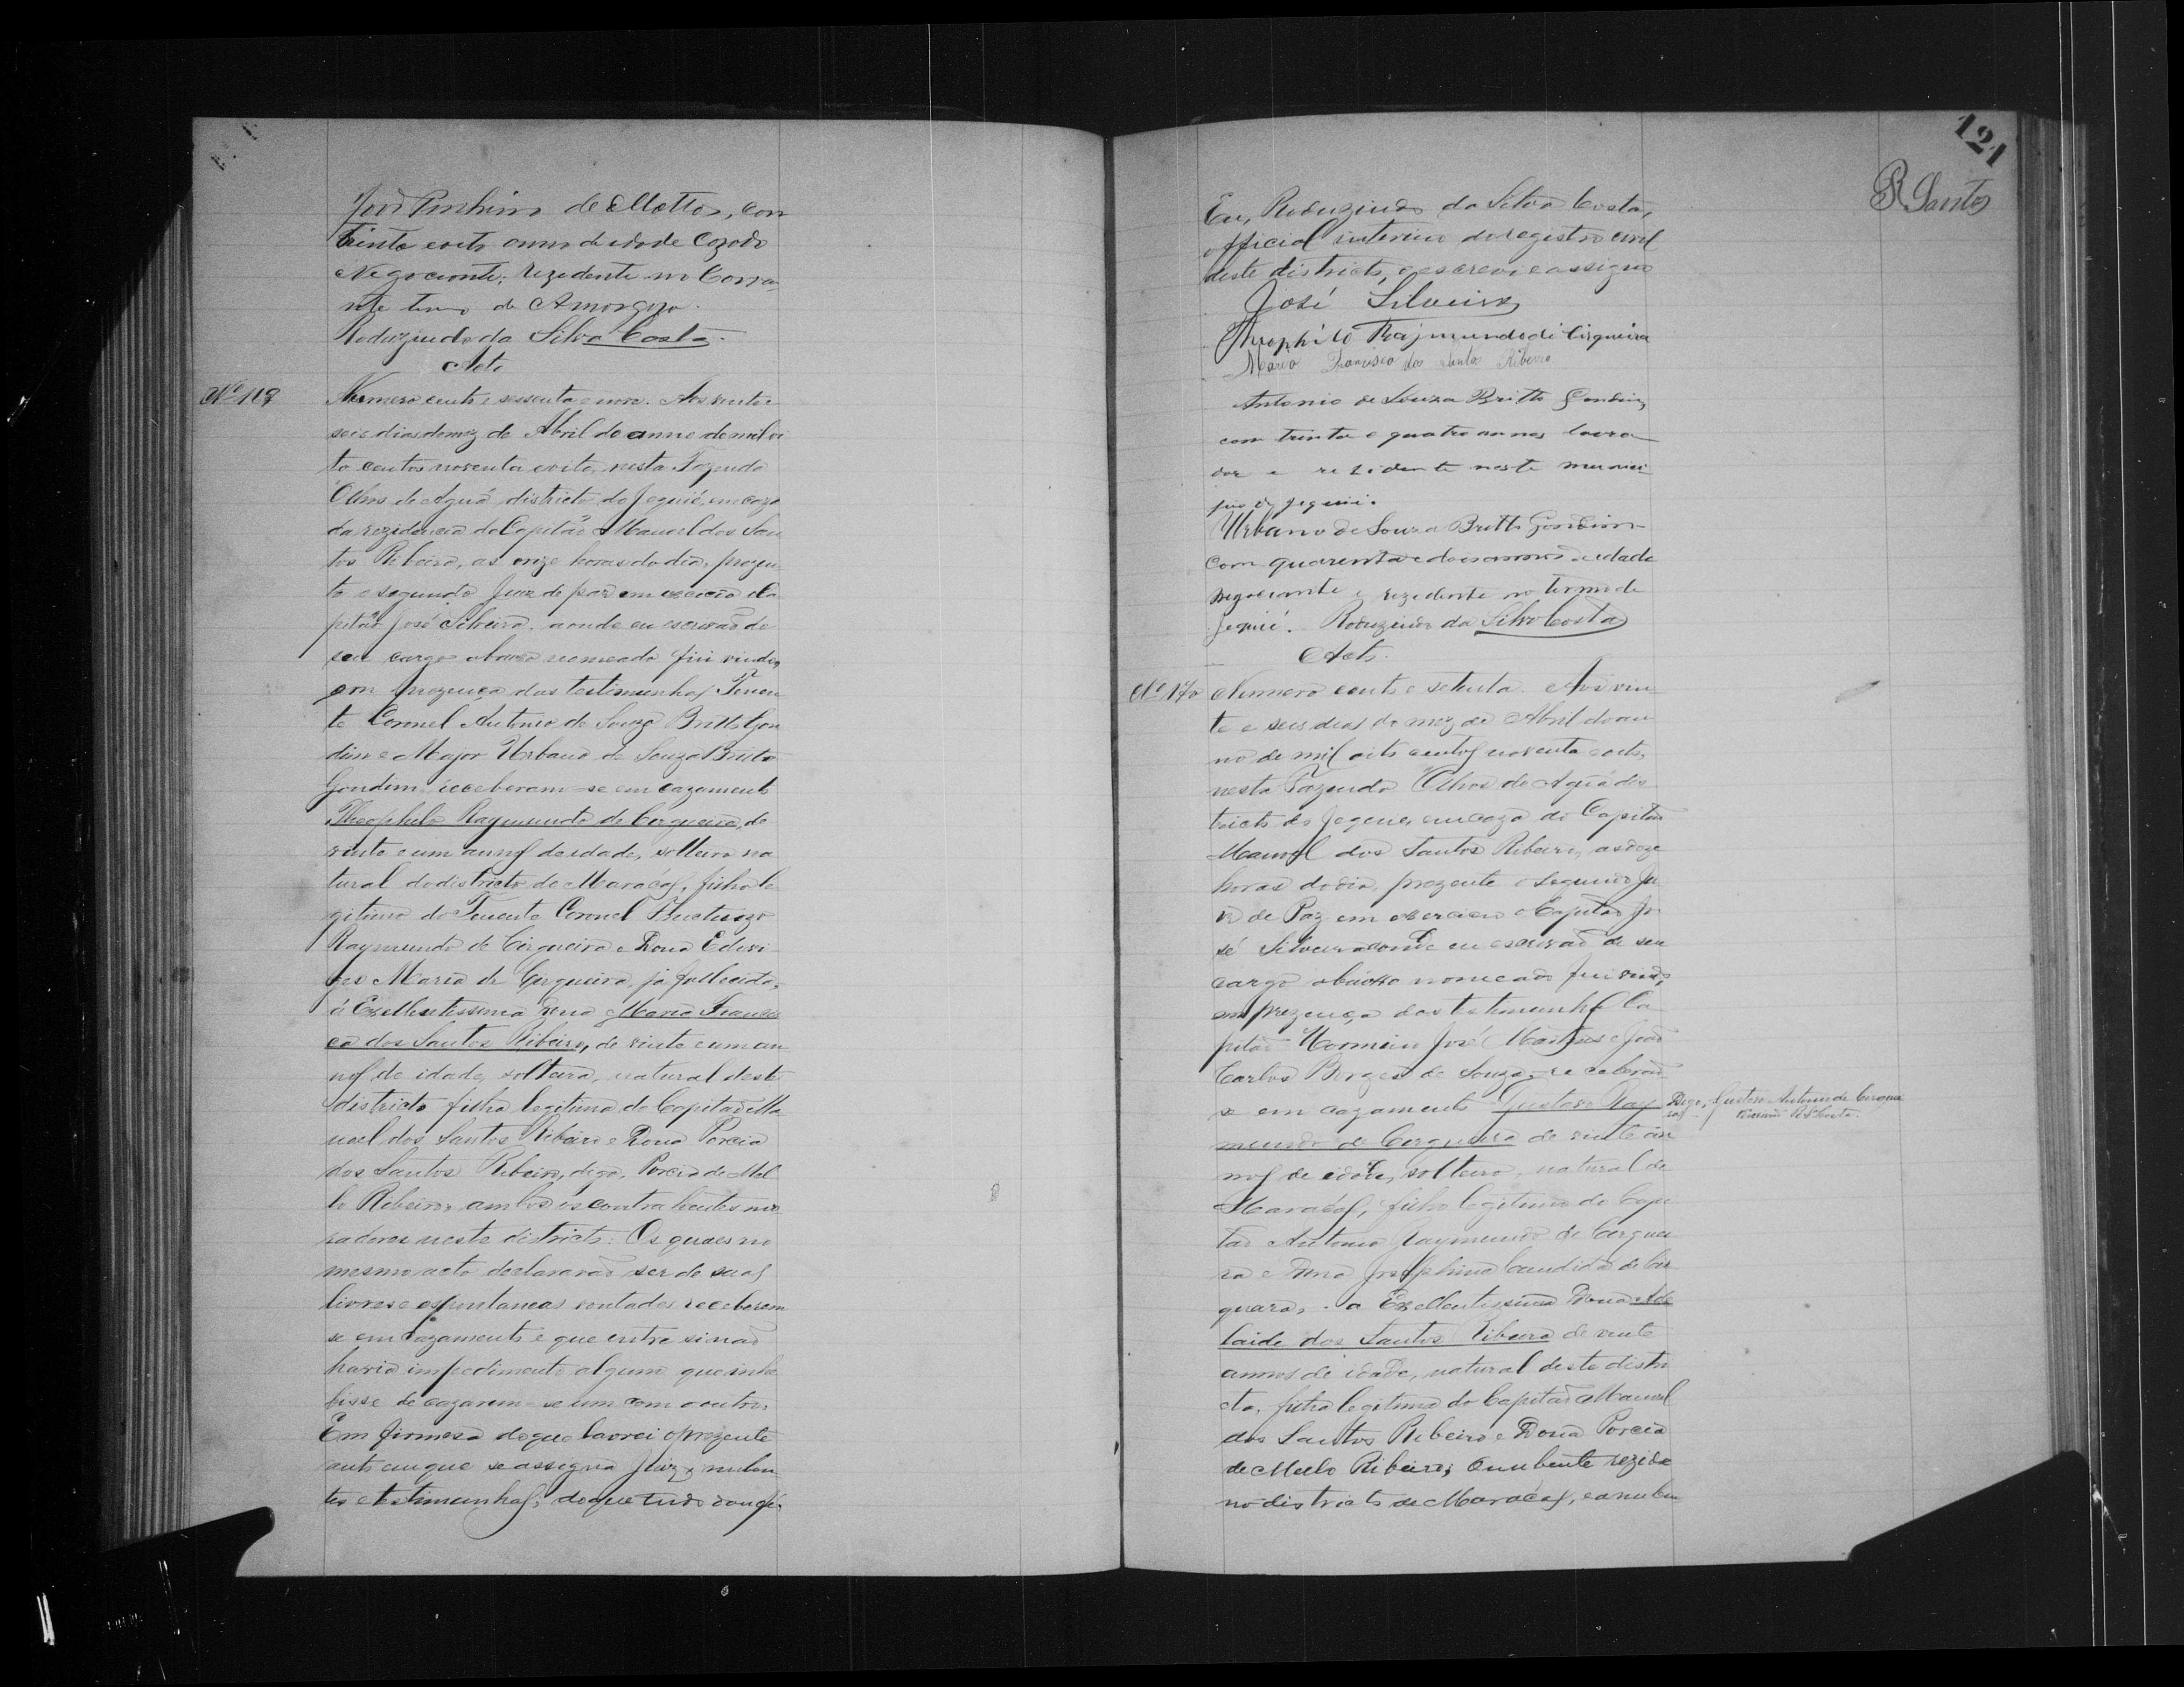 José Pinheiro de Mattos, com
trinta e oito annos de idade Cazado
Negociante, rezidente no Corra
nte termo de Amargoza.
Roduzindo da Silva Costa.
Acto
Nº 118
Numero cento e sessenta e nove. Aos vinte e
seis dias do mez de Abril do anno de mil oi
to centos noventa e oito, nesta Fazenda
Olhos de Agua districto do Jequié, em caza
da rezidencia do Capitão Manoel dos San
tos Ribeiro, as onze horas do dia, prezen
te o segundo Juiz de paz em execicio Ca
pitão José Silveira. aonde eu escrivão de
seu cargo abaixo nomeado fui vindo,
em prezença das testimunhas Tenen
te Coronel Antonio de Souza Britto Gon
dim e Major Urbano de Souza Britto
Gondim receberam-se em cazamento
Theophilo Raymundo de Cirqueira, de
vinte e um annos de idade, solteiro na
tural do districto de Maracás, filho le
gitimo do Tenente Coronel
Raymundo de Cirqueira e Dona Edevi
ges Maria de Cirqueira, já fallecida,
á Exellentissima Dona Maria Francis
ca dos Santos Ribeiro, de vinte e um an
nos de idade, solteira, natural deste
districto filha legitima do Capitão Ma
noel dos Santos Ribeiro e Dona Porcia
dos Santos Ribeiro, digo, Porcia de Mel
lo Ribeiro, ambos os contrahentes mo
radores neste districto. Os quaes no
mesmo acto declararão ser de suas
livres e espontaneas vontades receberem
se em cazamento e que entre si não
havia impedimento algum que inhi
bisse de cazarem-se um com o outro.
Em firmesa do que lavrei o prezente
auto em que se assigna Juiz, nuben
tes e testimunhas; do que tudo dou fé.
121
R Santos
Eu, Roduzindo da Silva Costa,
official interino do registro civil
deste districto, o escrevi e assigno
José Silveira
Theophilo Raymundo de Cirqueira
Maria Francisca dos Santos Ribeiro
Antonio de Souza Britto Gondim,
com trinta e quatro annos lavra
dor e rezidente neste munici
pio de Jequié.
Urbano de Souza Britto Gondim
com quarenta e dois annos de idade
negociante e rezidente no termo de
Jequié. Roduzindo da Silva Costa
Acto.
Nº 170
Numero cento e setenta. Aos vin
te e seis dias do mez de Abril do an
no de mil oito centos noventa e oito,
nesta Fazenda Olhos de Agua dis
tricto do Jequié, em caza do Capitão
Manoel dos Santos Ribeiro, as doze
horas do dia, prezente o segundo Ju
iz de Paz em exercicio o Capitão Jo
sé Silveira aonde eu escrivão de seu
cargo abaixo nomeado fui vindo,
em prezença das testimunhas Ca
pitão José Martins e João
Carlos Borges de Souza, receberão
se em cazamento Gustavo Ray
Digo, Gustavo Antonio de Cirquei
ra R S Costa.
mundo de Cirqueira de vinte an
nos de idade, solteiro, natural de
Maracás, filho legitimo do Capi
tão Antonio Raymundo de Cirquei
ra e Dona Josephina Candida de Cir
queira, a Exellentissima Dona Ade
laide dos Santos Ribeiro de vinte
annos de idade, natural deste distri
cto, filha legitima do Capitão Manoel
dos Santos Ribeiro e Dona Porcia
de Mello Ribeiro; O nubente rezide
no districto de Maracás, e a nuben